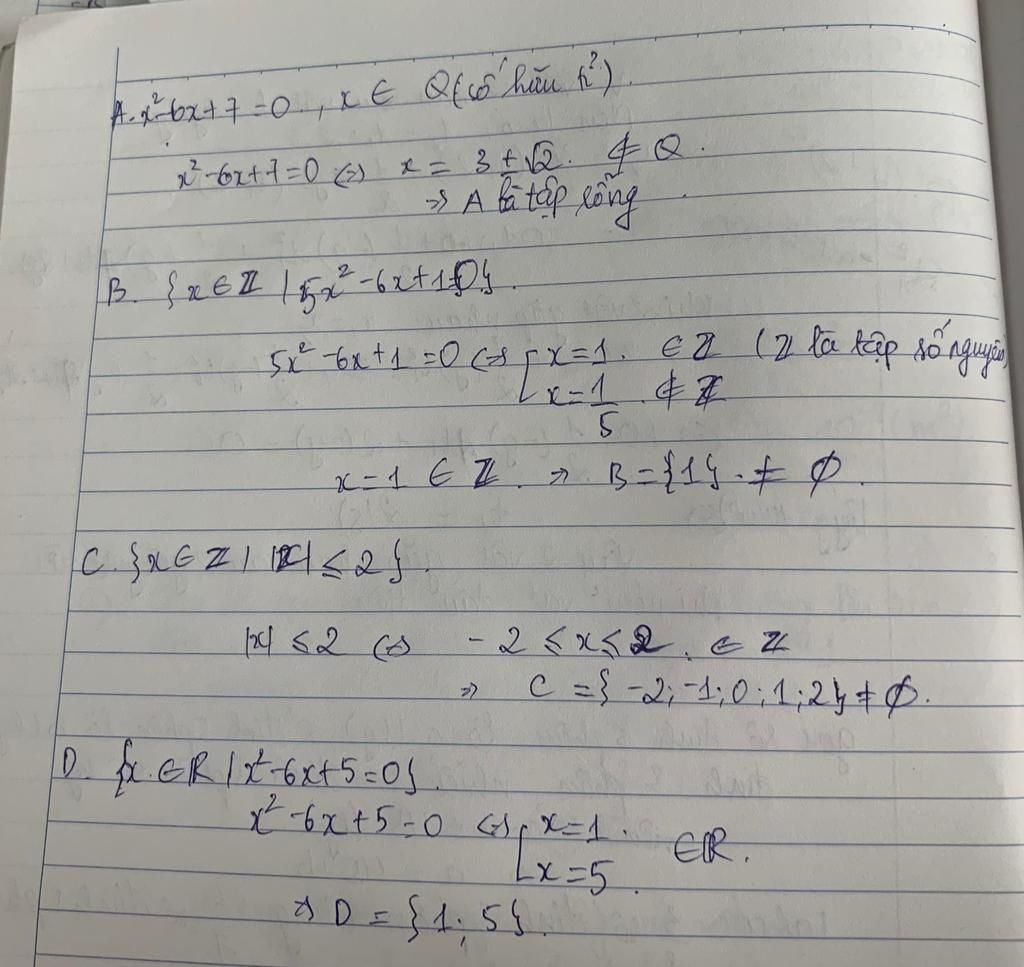 A. x² - 6x + 7 = 0, x ∈ Q (số hữu tỉ).
x² - 6x + 7 = 0 <=> x = 3 ± √2. ∉ Q.
=> A là tập rỗng
B. {x ∈ Z | 5x² - 6x + 1 = 0}.
5x² - 6x + 1 = 0 <=> [ x = 1. ∈ Z (Z là tập số nguyên)
x = 1/5 ∉ Z
x = 1 ∈ Z. => B = {1} ≠ ∅.
C. {x ∈ Z | |x| ≤ 2}.
|x| ≤ 2 <=> -2 ≤ x ≤ 2. ∈ Z
=> C = {-2; -1; 0; 1; 2} ≠ ∅.
D. {x ∈ R | x² - 6x + 5 = 0}.
x² - 6x + 5 = 0 <=> [ x = 1.
x = 5. ∈ R.
=> D = {1; 5}.